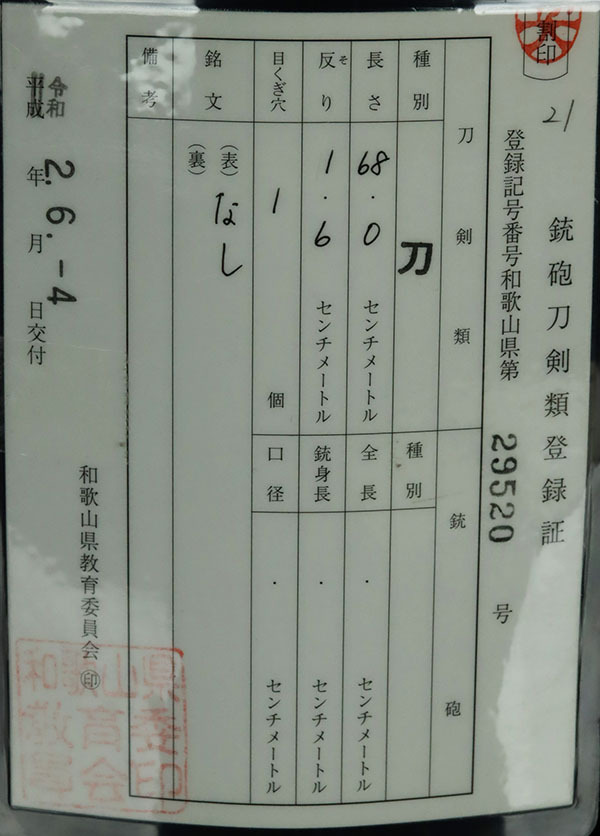 割印
21
銃砲刀剣類登録証
登録記号番号和歌山県第 29520 号
刀剣類
銃砲
種別 刀
種別
長さ 68.0 センチメートル
全長 ・ センチメートル
反り そ 1.6 センチメートル
銃身長 ・ センチメートル
目くぎ穴 1 個
口径 ・ センチメートル
銘文 (表) なし
(裏)
備考
令和
平成 2年 6.月 -4日交付
和歌山県教育委員会 ㊞